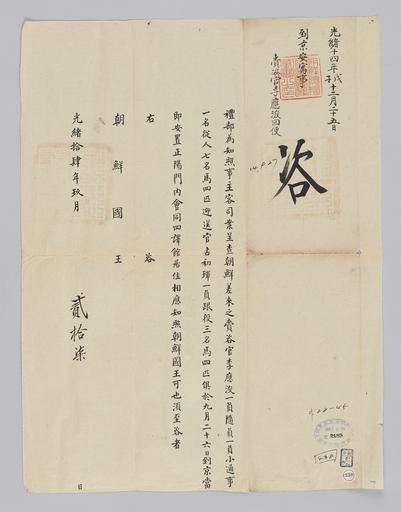 光緒十四年戊子十二月二十五日
到京安寓事
賫咨官李應浚回便
咨
禮部為知照事主客司案呈查朝鮮差來之賫咨官李應浚一員隨員一員小通事
一名從人七名馬四匹迎送官占初琿一員跟役三名馬四匹俱於九月二十六日到京當
即安置正陽門內會同四譯館居住相應知照朝鮮國王可也須至咨者
右咨
朝鮮國王
光緒拾肆年玖月
貳拾柒
日
2185